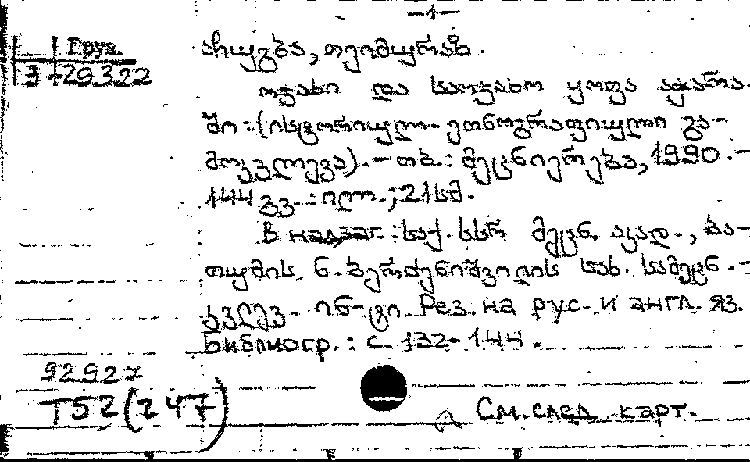 —1—
Груз.
3-29322
აჩუგბა, თეიმურაზ.
ოჯახი და საოჯახო ყოფა აჭარა-
ში : (ისტორიულ-ეთნოგრაფიული გა-
მოკვლევა). – თბ. : მეცნიერება, 1990. –
144 გვ. : ილ. ; 21 სმ.
В надзаг. : საქ. სსრ მეცნ. აკად., ბა-
თუმის ნ. ბერძენიშვილის სახ. სამეცნ. -
კვლევ. ინ-ტი. Рез. на рус. и англ. яз.
Библиогр. : с. 132-144.
92927
Т52(247)
См. след. карт.